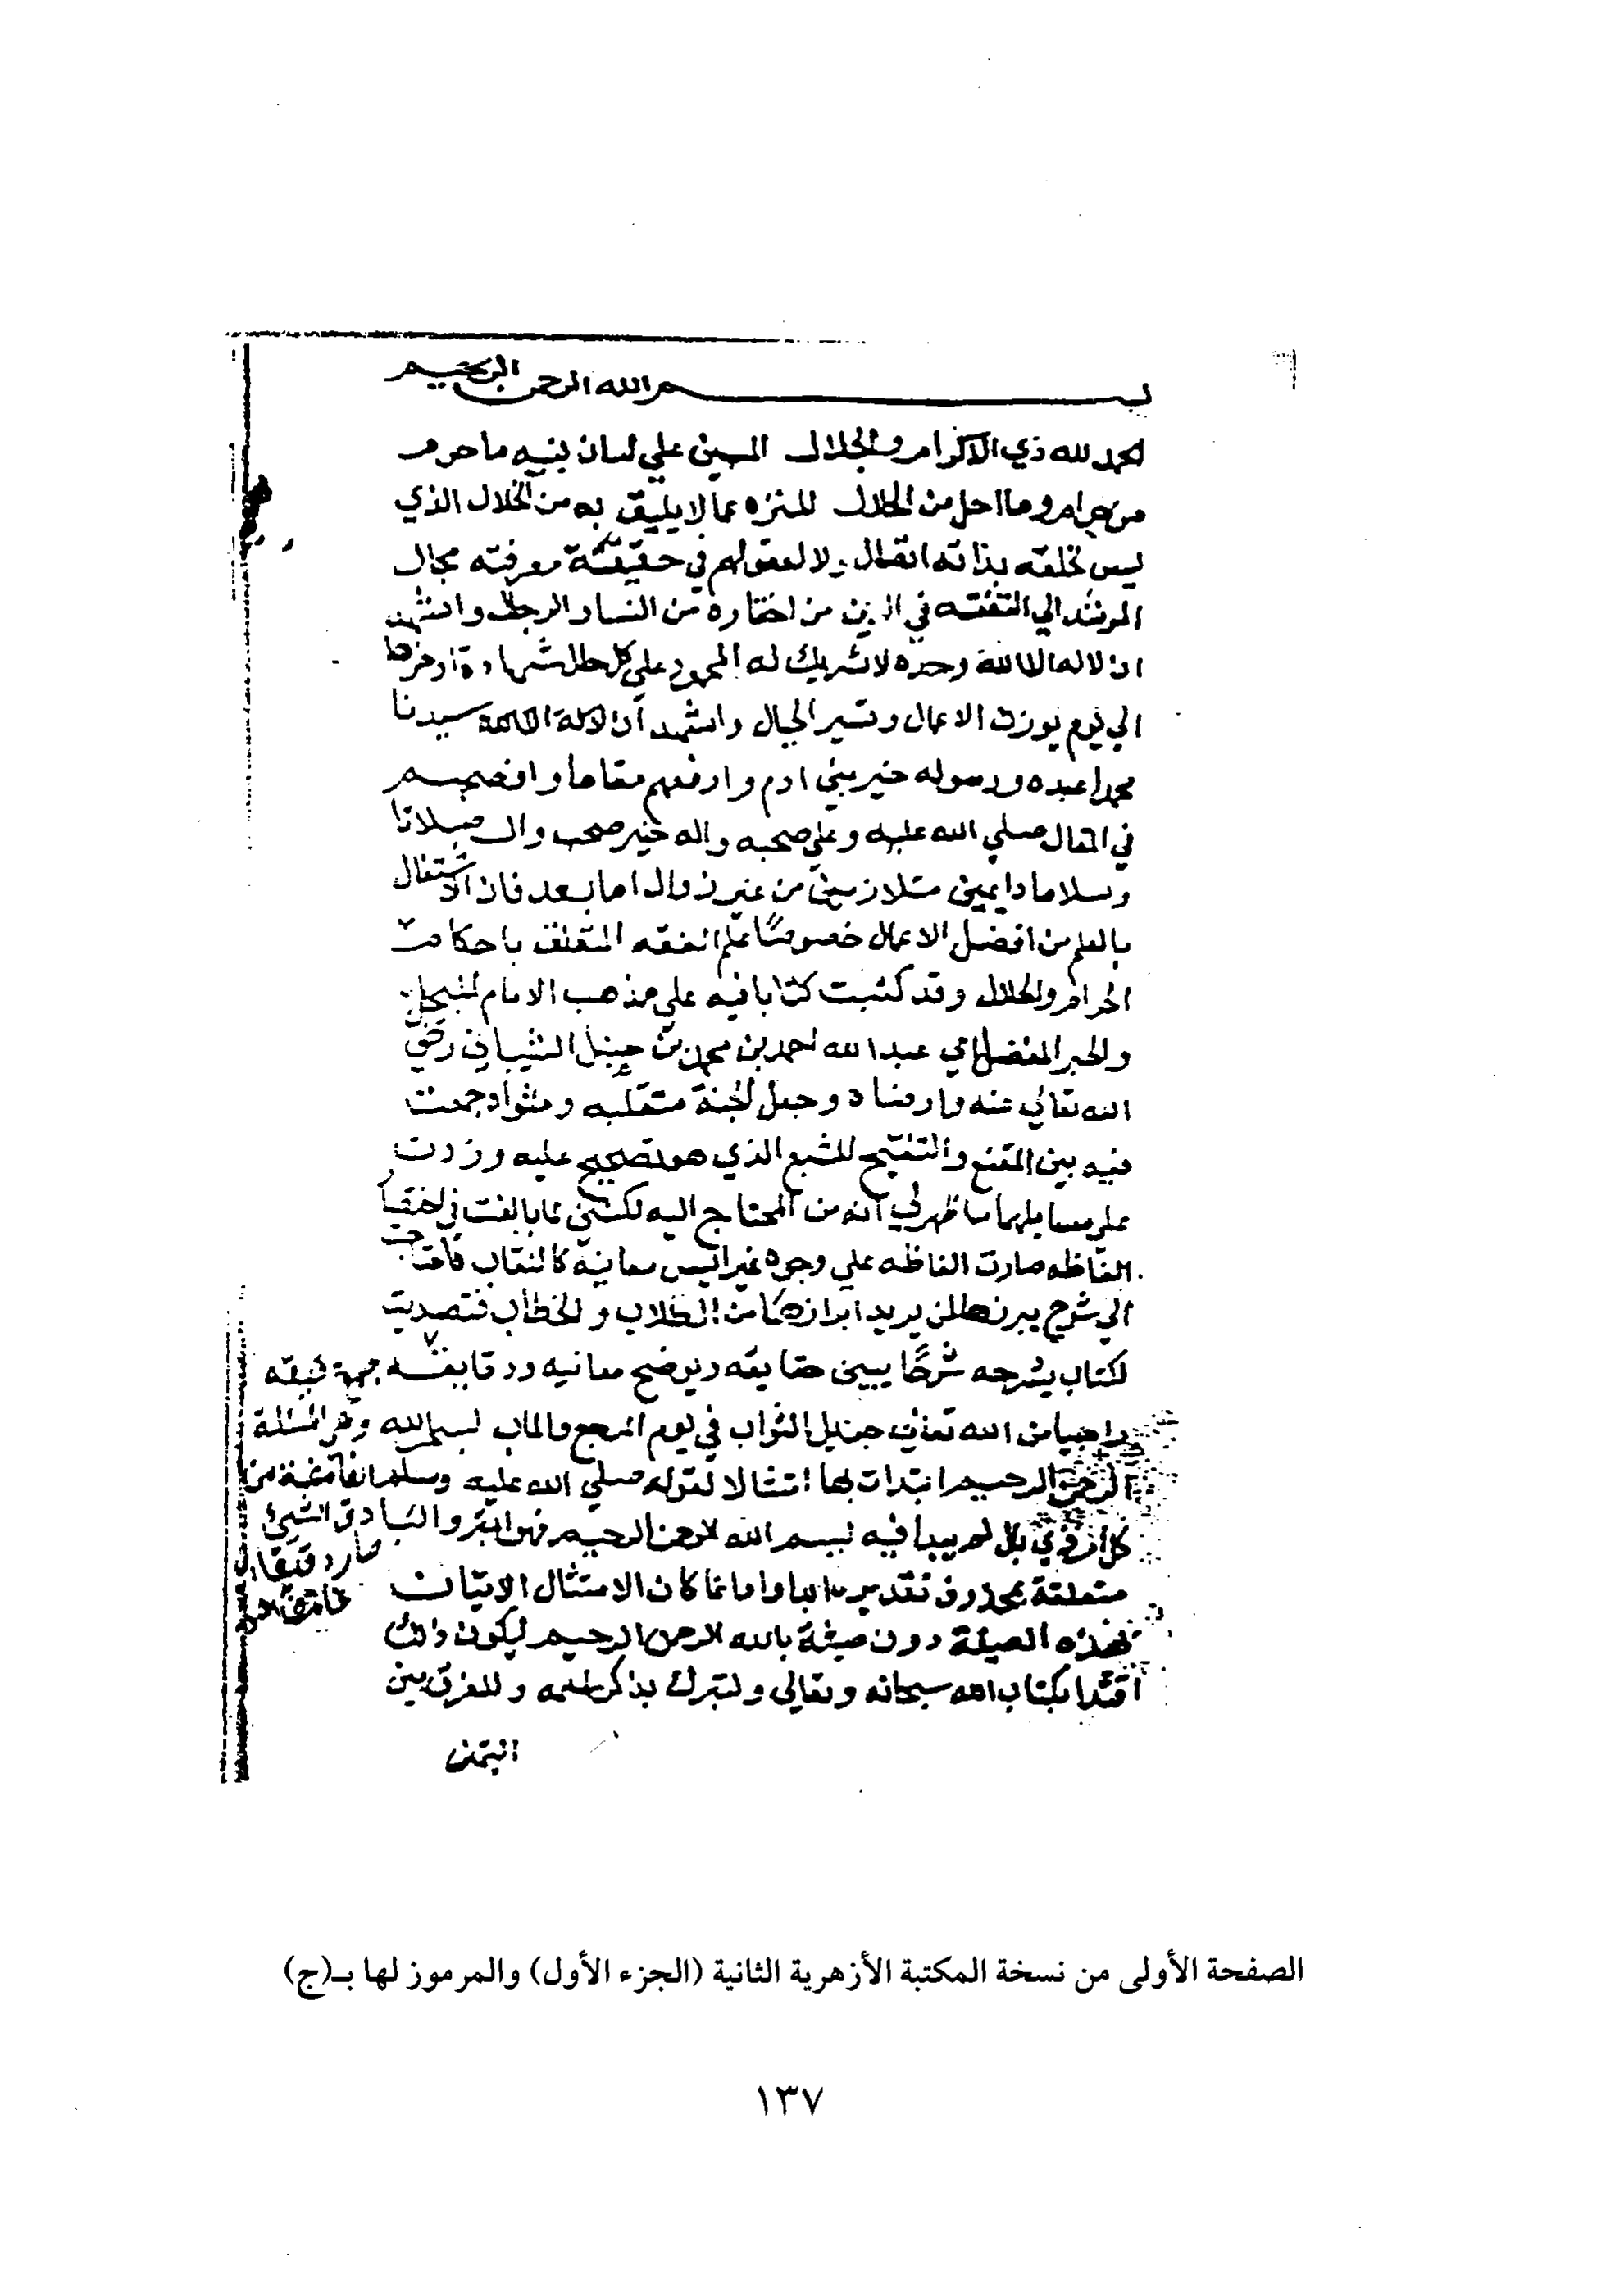 بسم الله الرحمن الرحيم
الحمد لله ذي الاكرام والجلال المبين علي لسان نبيه ما حرم
من حرام وما احل من الحلال المنزه عما لا يليق به من الخلال الذي
ليس لخلقه بذاته اتصال ولا لعقولهم في حقيقة معرفته مجال
المرشد الي التفقه في الدين من اختاره من النسا والرجال واشهد
ان لا اله الا الله وحده لا شريك له المحمود علي كل حال شهادة ادخرها
الي يوم يوزن الاعمال وتسير الجبال واشهد ان سيدنا
محمدا عبده ورسوله خير بني ادم وارفعهم مقاما وافصحهم
في المقال صلي الله عليه وعلي صحبه واله خير صحب وال صلاتا
وسلاما دايمين متلازمين من غير زوال اما بعد فان الاشتغال
بالعلم من افضل الاعمال خصوصا علم الفقه المتعلق باحكام
الحرام والحلال وقد كتبت كتابا فيه علي مذهب الامام المبجل
والحبر المفضل ابي عبد الله احمد بن محمد بن حنبل الشيباني رضي
الله تعالي عنه وارضاه وجعل الجنة متقلبه ومثواه جمعت
فيه بين المقنع والتنقيح المشبع الذي هو تصحيح عليه وزدت
علي مسايلهما ما ظهر لي انه من المحتاج اليه لكنني لما بالغت في اختصار
الفاظه صارت الفاظه علي وجوه عرايس معانيه كالنقاب فاحتاجت
الي شرح يبرزها لمن يريد ابرازها من الطلاب والخطاب فتصديت
لكتاب يشرحه شرحا يبين حقايقه ويوضح معانيه ودقايقه
راجيا من الله تعالي جزيل الثواب في يوم المرجع والماب بسم الله
الرحمن الرحيم ابتدات بها امتثالا لقوله صلي الله عليه وسلم
كل امر ذي بال لم يبدا فيه ببسم الله الرحمن الرحيم فهو ابتر والبا
متعلقة بمحذوف تقديره ابدا وانما كان الامتثال الاتيان
بهذه الصيغة دون صيغة بالله الرحمن الرحيم ليكون ذالك
اقتدا بكتاب الله سبحانه وتعالي ولتبرك بذكر اسمه وللفرق بين
التيمن
الصفحة الأولى من نسخة المكتبة الأزهرية الثانية (الجزء الأول) والمرموز لها بـ(ج)
١٣٧